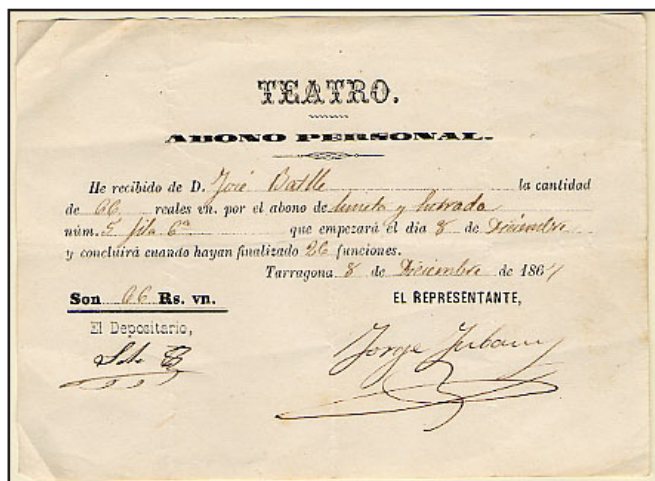 TEATRO.
ABONO PERSONAL.
He recibido de D. José Batlle la cantidad
de 66 reales vn. por el abono de luneta y Entrada
núm. 5 fila 6ª que empezará el dia 8 de Diciembre
y concluirá cuando hayan finalizado 26 funciones.
Tarragona 8 de Diciembre de 186
Son 66 Rs. vn. EL REPRESENTANTE,
El Depositario,
Jorge